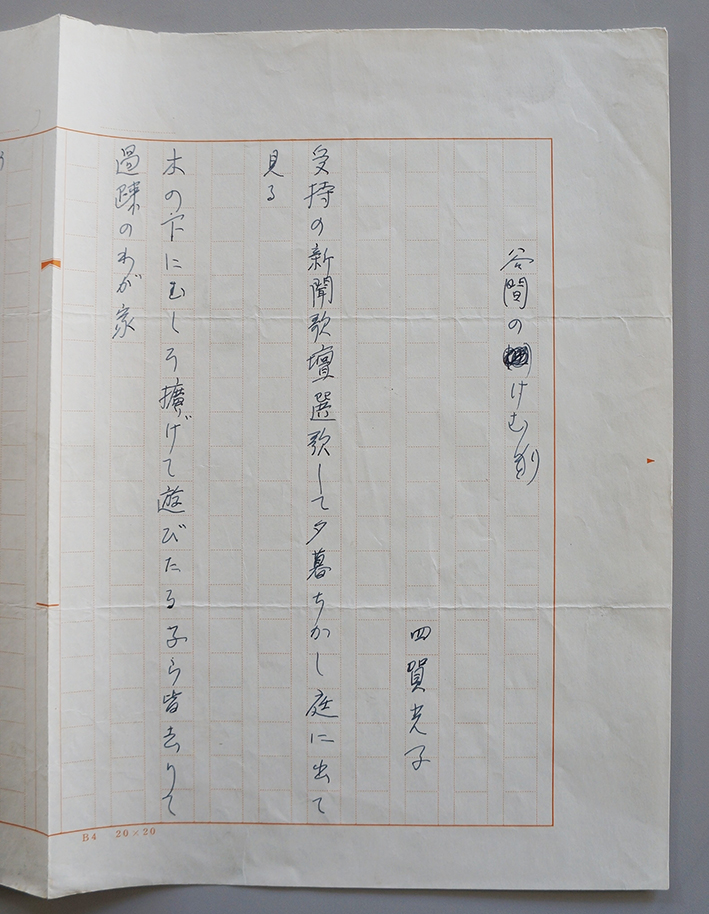 谷間のけむり
四賀光子
受持の新聞歌壇選歌して夕暮ちかし庭に出て
見る
木の下にむしろ擴げて遊びたる子ら皆去りて
過疎のわが家
B4 20×20